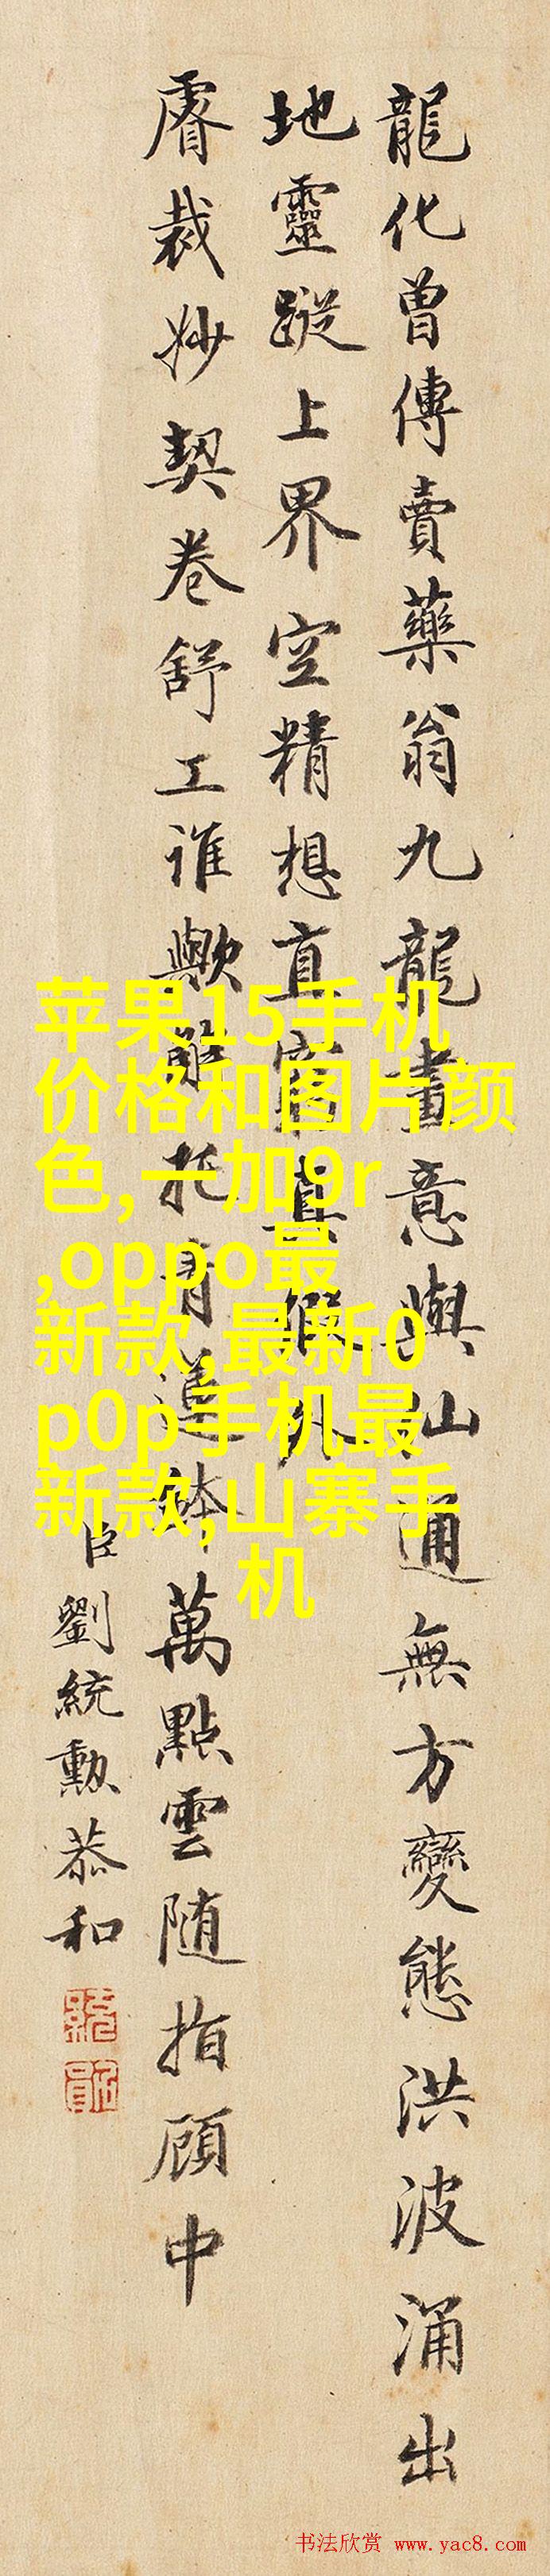 龍化曾傳賣藥翁九龍畫意與仙通無方變態洪波涌出
地靈蹤上界空精想直窮真假外
睿裁妙契卷舒工誰歟雖托青蓮鉢萬點雲随指顧中
臣劉統勲恭和
苹果15手机
价格和图片颜
色,一加9r
,oppo最
新款,最新0
p0p手机最
新款,山寨手
机
书法欣赏 www.yac8.com